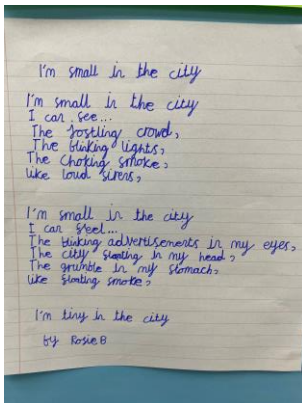 I'm small in the city
I'm small in the city
I can see...
The jostling crowd,
The blinking lights,
The choking smoke,
like loud sirens,
I'm small in the city
I can feel...
The blinking advertisements in my eyes,
The city floating in my head,
The grumble in my stomach,
like floating smoke,
I'm tiny in the city
by Rosie B